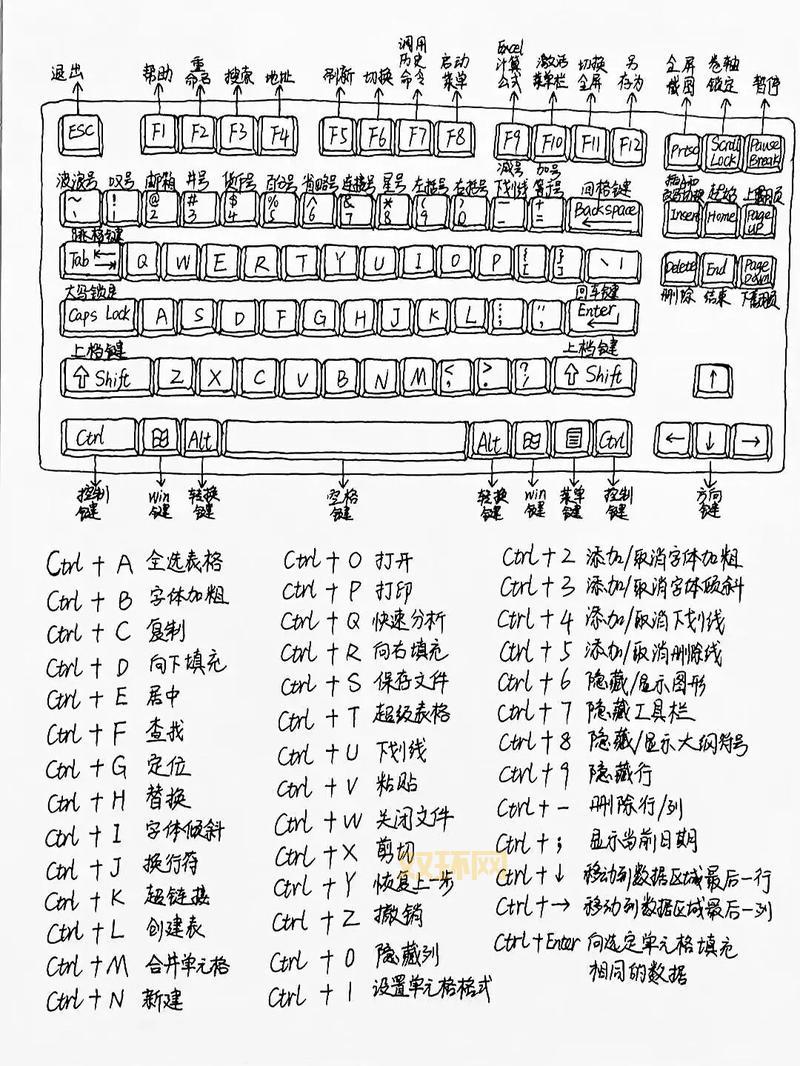 退出 帮助 重命名 搜索 地址 刷新 切换 调用历史命令 启动菜单 Excel计算公式 激活菜单栏 切换全屏 另存为 全屏截图 卷轴锁定 暂停
ESC F1 F2 F3 F4 F5 F6 F7 F8 F9 F10 F11 F12 Prtsc Scroll Lock Pause Break
波浪号 叹号 邮箱 井号 货币号 百分号 省略号 连接号 星号 左括号 右括号 减号下划线 加号等于号 回格键 起始 上翻页
~ ` ! 1 @ 2 # 3 $ 4 % 5 ^ 6 & 7 * 8 ( 9 ) 0 — - + = Backspace Insert Home Page UP
跳格键
Tab Q W E R T Y U I O P { [ } ] \ | Delete End Page Down
删除 结束 下翻页
大写锁定 回车键
Caps Lock A S D F G H J K L : ; " ' Enter
上档键 上档键
Shift Z X C V B N M < , > . ? / Shift ↑
Ctrl Alt Alt Ctrl ← ↓ →
控制键 win键 转换键 空格键 转换键 win键 菜单键 控制键 方向键
Ctrl + A 全选表格
Ctrl + B 字体加粗
Ctrl + C 复制
Ctrl + D 向下填充
Ctrl + E 居中
Ctrl + F 查找
Ctrl + G 定位
Ctrl + H 替换
Ctrl + I 字体倾斜
Ctrl + J 换行符
Ctrl + K 超链接
Ctrl + L 创建表
Ctrl + M 合并单元格
Ctrl + N 新建
Ctrl + O 打开
Ctrl + P 打印
Ctrl + Q 快速分析
Ctrl + R 向右填充
Ctrl + S 保存文件
Ctrl + T 超级表格
Ctrl + U 下划线
Ctrl + V 粘贴
Ctrl + W 关闭文件
Ctrl + X 剪切
Ctrl + Y 恢复上一步
Ctrl + Z 撤销
Ctrl + 0 隐藏列
Ctrl + 1 设置单元格格式
Ctrl + 2 添加/取消字体加粗
Ctrl + 3 添加/取消字体倾斜
Ctrl + 4 添加/取消下划线
Ctrl + 5 添加/取消删除线
Ctrl + 6 隐藏/显示图形
Ctrl + 7 隐藏工具栏
Ctrl + 8 隐藏/显示大纲符号
Ctrl + 9 隐藏行
Ctrl + - 删除行/列
Ctrl + ; 显示当前日期
Ctrl + ↓ 移动到数据区域最后一行
Ctrl + → 移动到数据区域最后一列
Ctrl + Enter 向选定单元格填充
相同的数据
双环网